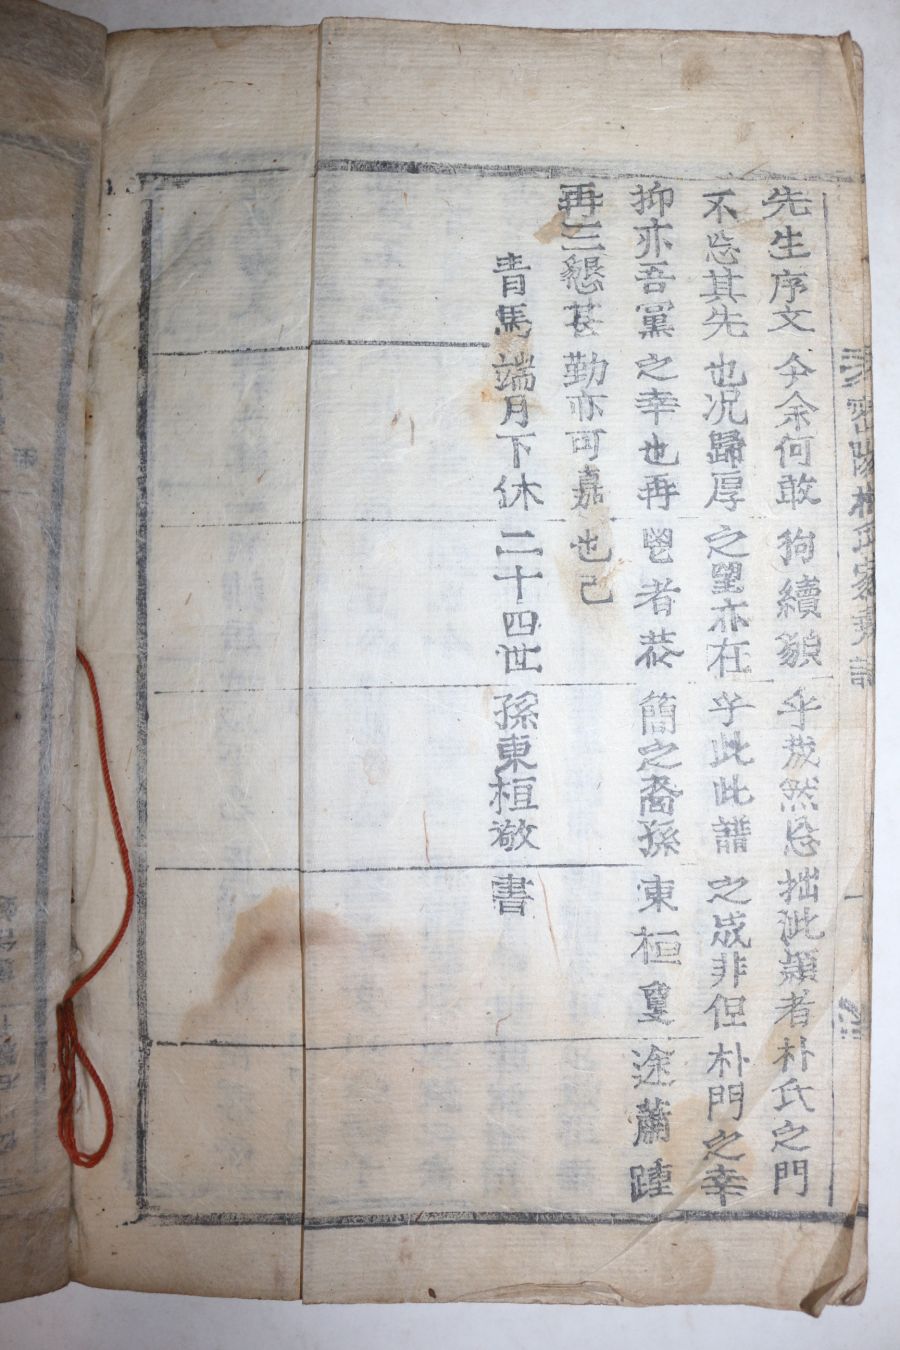 先生序文今余何敢狗續貂乎哉然忘拙泚顙者朴氏之門
不忘其先也况歸厚之望亦在乎此此譜之成非但朴門之幸
抑亦吾黨之幸也再鬯者菘簡之裔孫東桓蔓途蕭踵
再三懇甚勤亦可嘉也已
青馬端月下休二十四世孫東桓敬書
密陽朴氏家乘譜